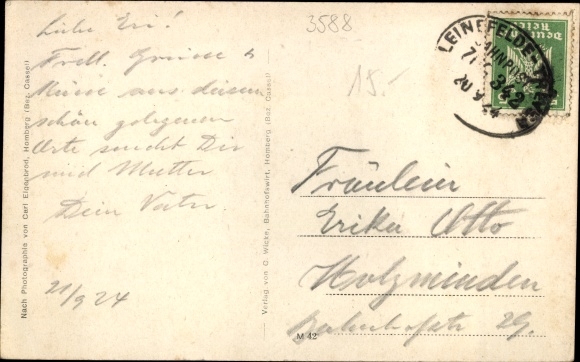 Liebe Eri!
Frdl. Grüsse u
Küsse aus diesem
schön gelegenen
Orte sendet Dir
und Mutter
Dein Vater.
21/9 24
Nach Photographie von Carl Eigenbrod, Homberg (Bez. Cassel)
Verlag von G. Wicke, Bahnhofswirt, Homberg (Bez. Cassel)
M 42
3588
15.-
LEINEFELDE-
BAHNPOST
342
20 9 24
Deutsches
Reich
Fräulein
Erika Otto
Holzminden
Bahnhofstr 29.